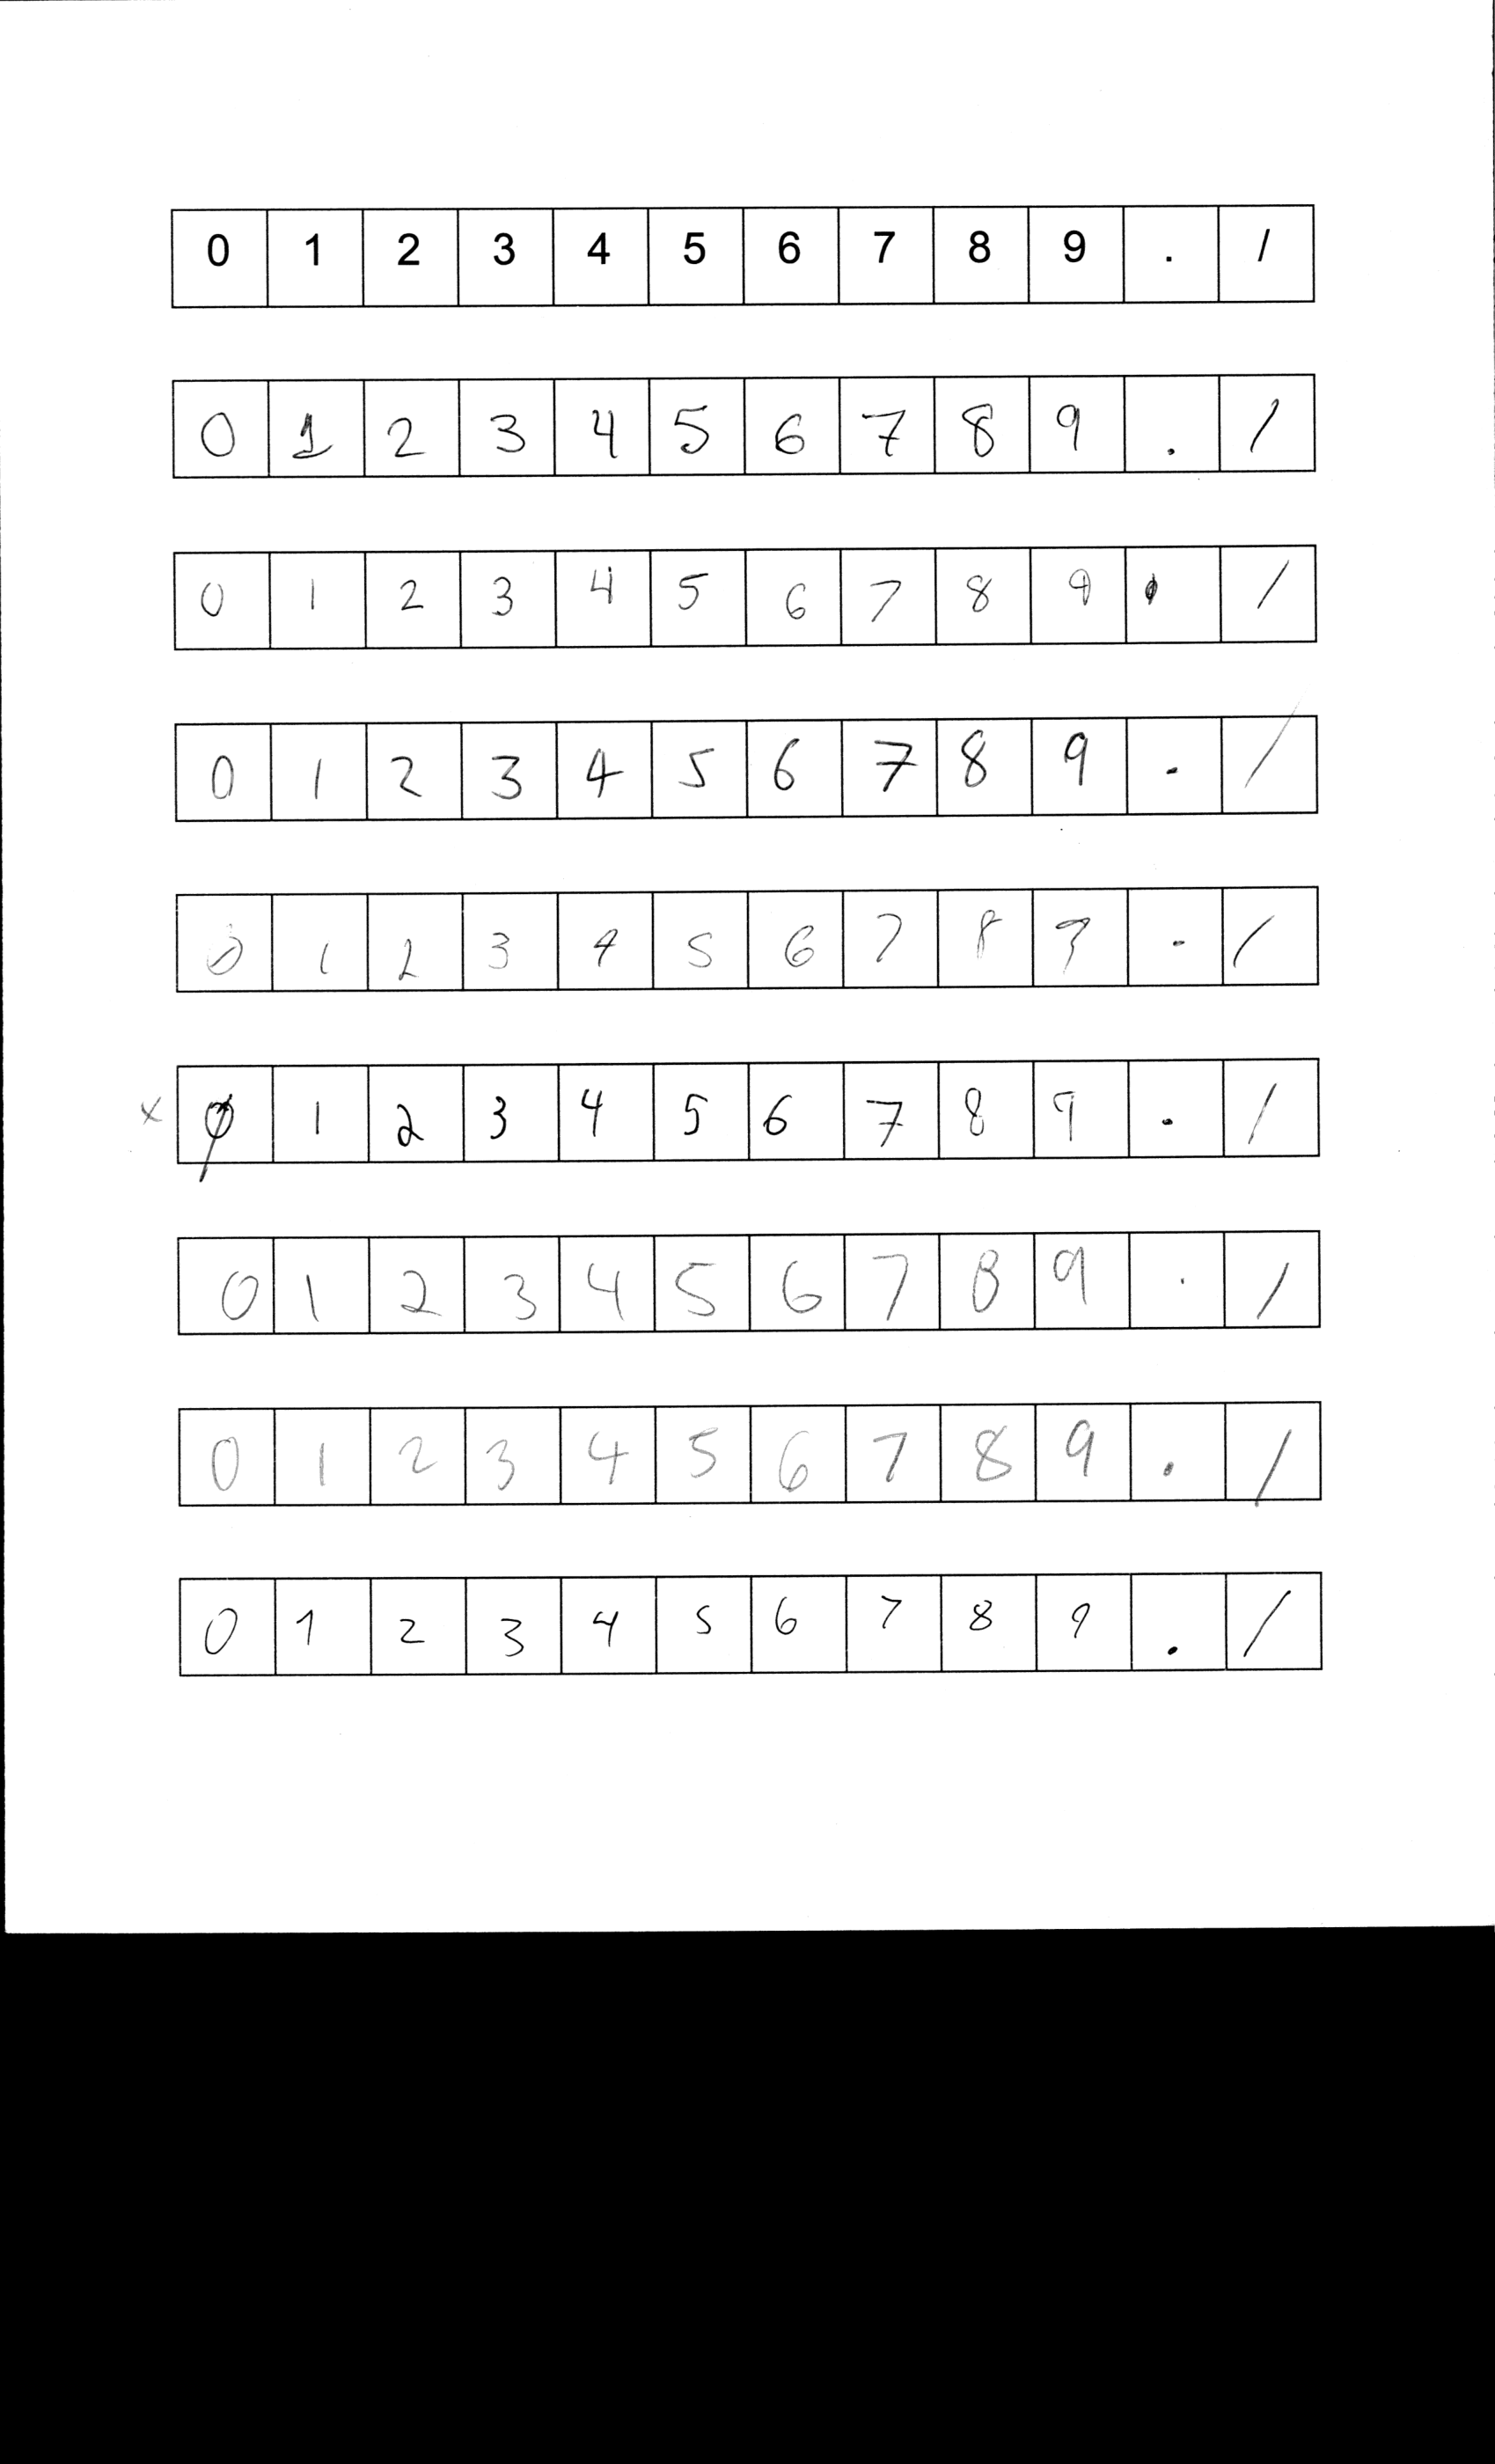 0 1 2 3 4 5 6 7 8 9 . /
0 1 2 3 4 5 6 7 8 9 . /
0 1 2 3 4 5 6 7 8 9 . /
0 1 2 3 4 5 6 7 8 9 . /
0 1 2 3 4 5 6 7 8 9 . /
x 0 1 2 3 4 5 6 7 8 9 . /
0 1 2 3 4 5 6 7 8 9 . /
0 1 2 3 4 5 6 7 8 9 . /
0 1 2 3 4 5 6 7 8 9 . /